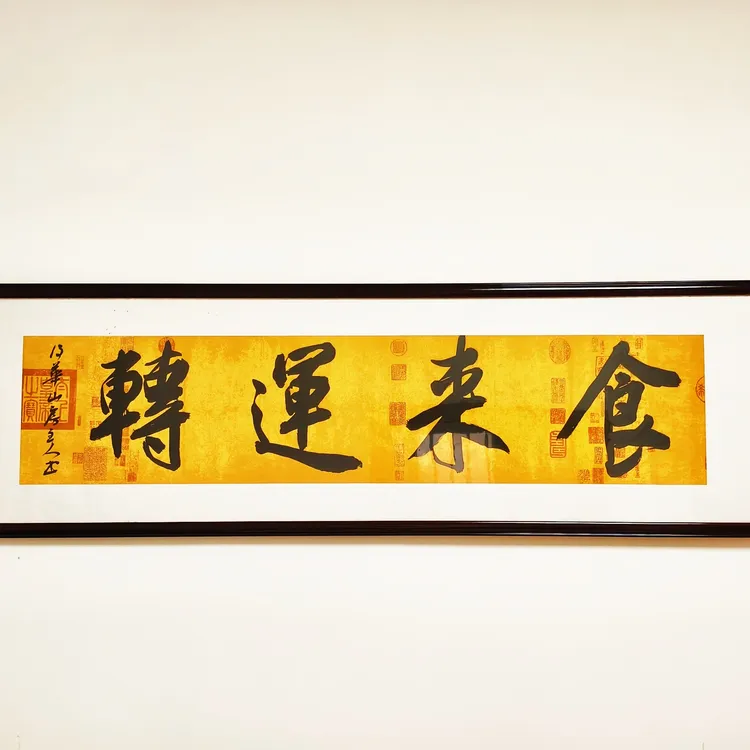 食来運轉